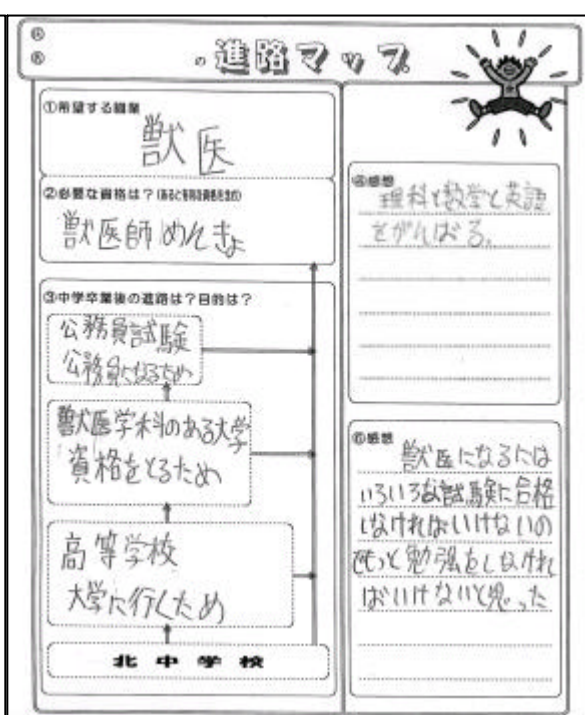 の進路マップ
①希望する職業
獣医
②必要な資格は？(あると有利な資格も含め)
獣医師めんきょ
③中学卒業後の進路は？目的は？
公務員試験
公務員になるため
獣医学科のある大学
資格をとるため
高等学校
大学に行くため
北中学校
④感想
理科と数学と英語
をがんばる。
⑥感想
獣医になるには
いろいろな試験に合格
しなければいけないの
でもっと勉強をしなけれ
ばいけないと思った